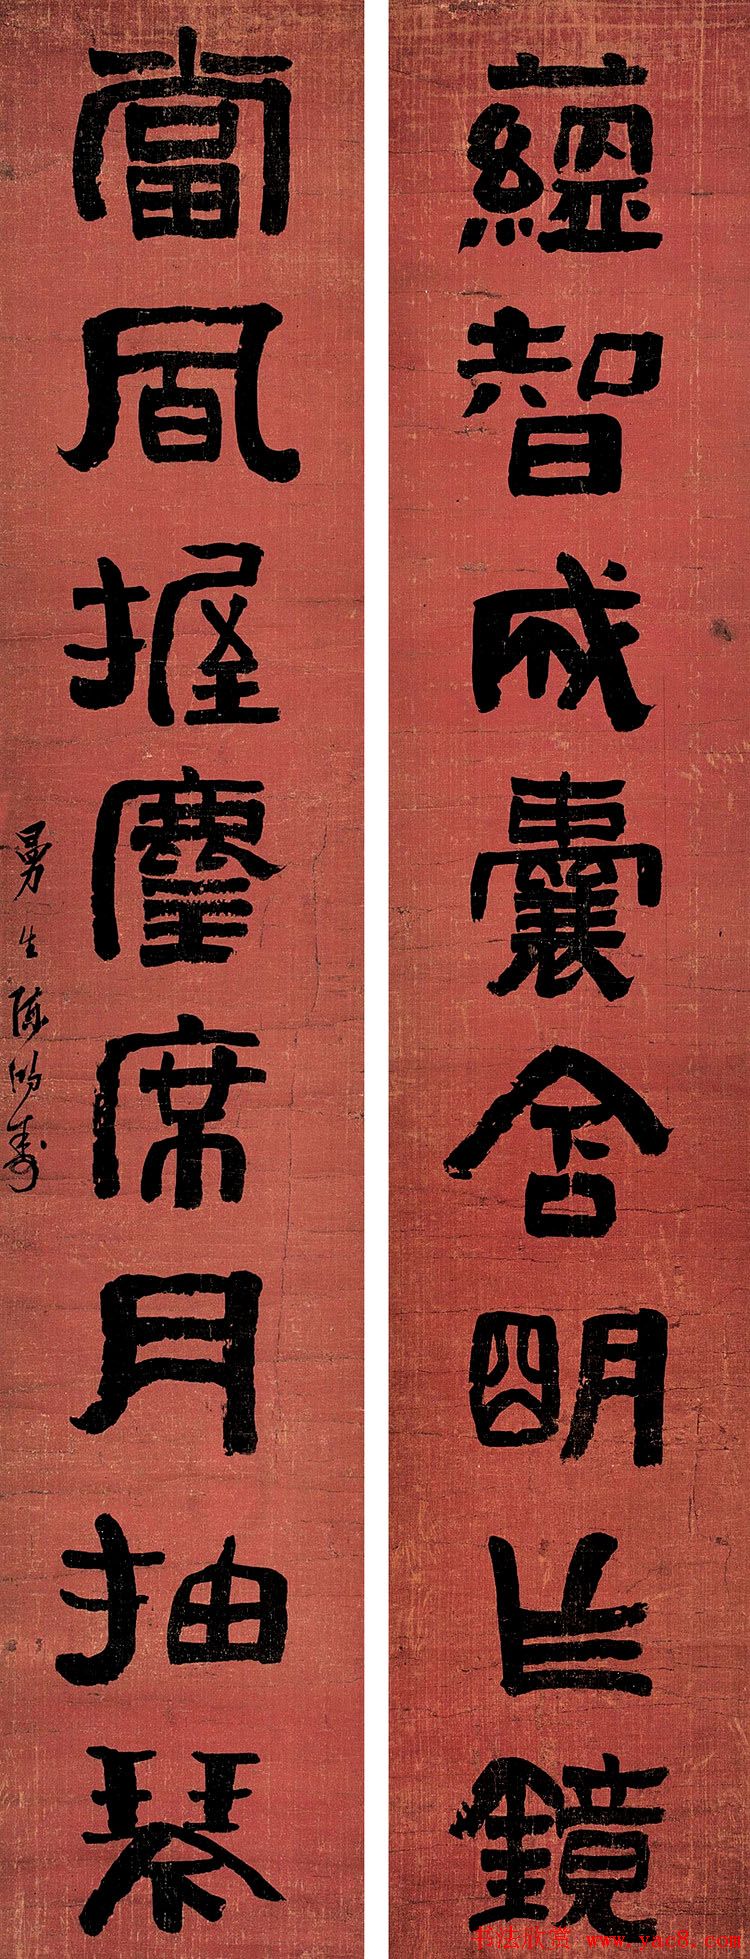 蘊智成囊含明作鏡
當風握麈席月抽琴
曼生陳鴻壽
书法欣赏 www.yac8.com